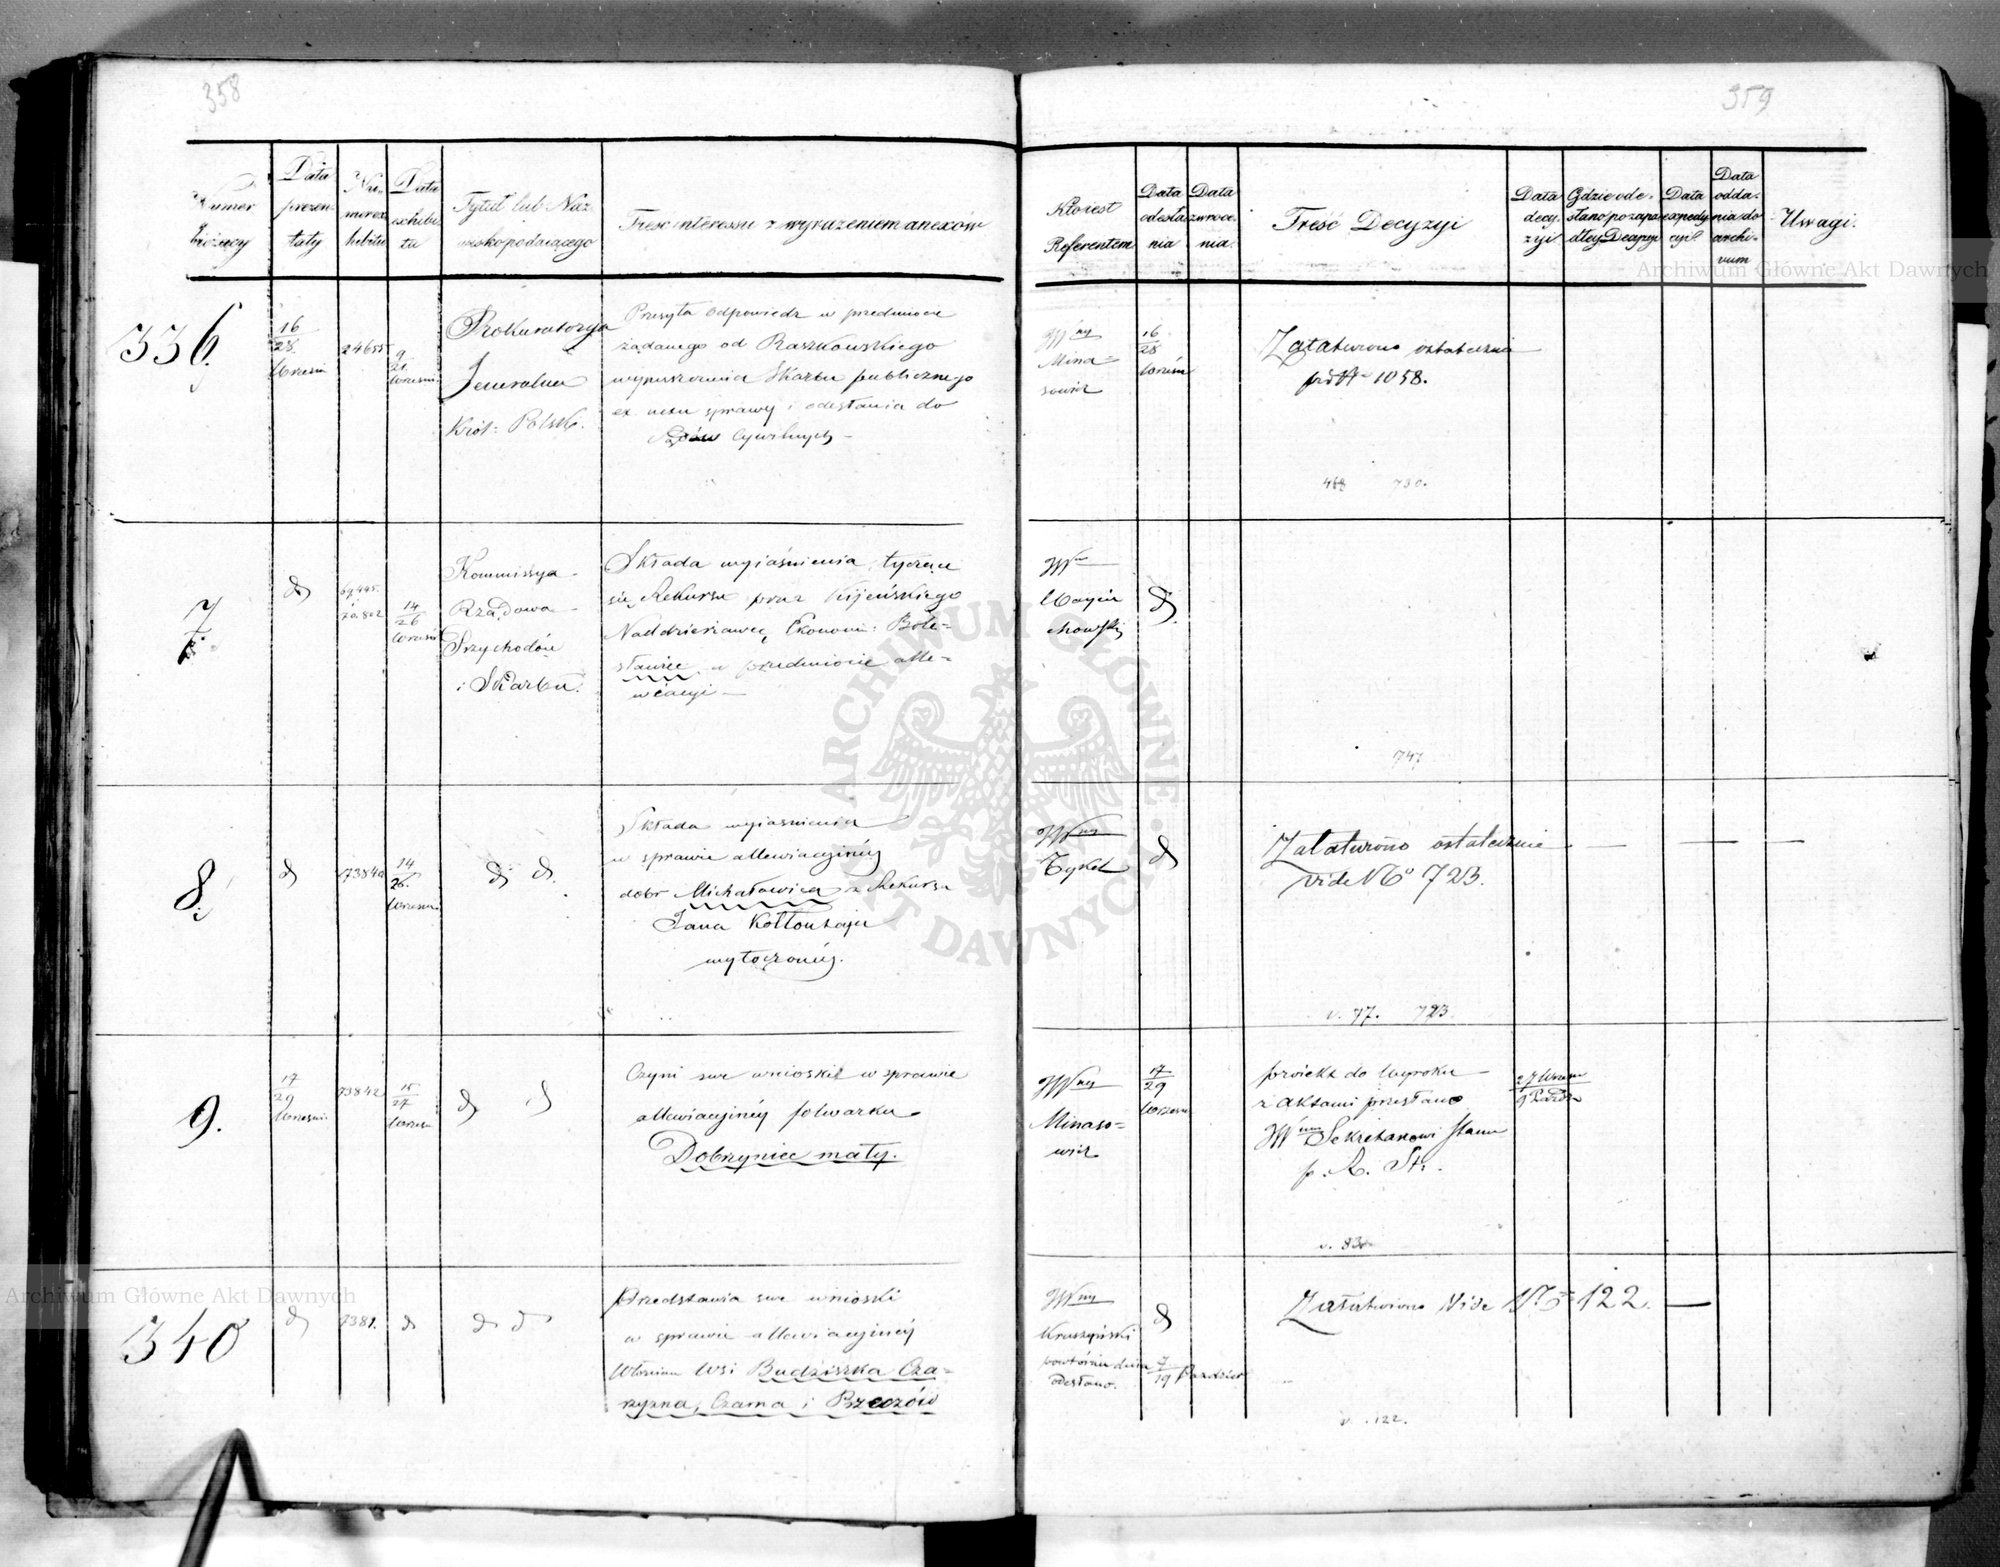 358
Numer
bieżący
Data
prezen-
taty
Nu-
mer ex-
hibitu
Data
exhibi-
ta
Tytuł lub Naz-
wisko podaiącego
Treść interessu z wyrażeniem anexów
336.
16
28
Wrześn
24655
9
21
Wrześn
Prokuratorya
Jeneralna
Król: Polsk:
Przesyła odpowiedz w przedmiocie
żądanego od Raszkowskiego
wypuszczenia Skarbu publicznego
ex nexu sprawy i odesłania do
Sądów Cywilnych
7.
d
69445.
i
70.802
14
26
Wrześn
Kommissya
Rządowa
Przychodów
i Skarbu.
Składa wyjaśnienia, tyczące
się Rekursu przez Kijeńskiego
Naddzierżawcę Ekonomi: Bole-
sławiec w przedmiocie alle-
wiacyi
8.
d
73840
14
26.
Wrześn
d d.
Składa wyjaśnienia
w sprawie allewiacyjnéy
dobr Michałowice z Rekursu
Jana Kołłontaja
wytoczonéy.
9.
17
29
Wrześni
73842
15
27
Wrześn
d d
Czyni swe wnioski w sprawie
allewiacyjnéy folwarku
Dobrzyniec mały.
340
d
7381.
d
d d
Przedstawia swe wnioski
w sprawie allewiacyjnéy
Włościan Wsi Budziszka Cza-
ryzna, Czarna i Brzozów
359
Kto iest
Referentem
Data
odesła-
nia
Data
zwróce-
nia.
Treść Decyzyi
Data
decy-
zyi
Gdzie ode-
słano po zapa-
dłey Decyzyi
Data
expedy-
cyi
Data
odda-
nia do
archi-
vum
Uwagi.
Wny
Mina=
sowicz
16
28
Wrześn
Załatwiono ostatecznie
pod N 1058.
468 730.
Wny
Woycie
chowski
d
747
Wny
Tykel
d
Załatwiono ostatecznie
vide No 723.
v. 77. 723
Wny
Minaso-
wicz
17
29
Wrześn
proiekt do Wyroku
z aktami przesłano
Wmu Sekretarzowi Stanu
p. R. St.
27 Wrześn
9 Paźdz
v. 83
Wny
Kruszyński
powtórnie dnia 7
19 Paździer
odesłano.
d
Załatwiono Vide No 122.
v. 122.
Archiwum Główne Akt Dawnych
Archiwum Główne Akt Dawnych
ARCHIWUM GŁÓWNE
AKT DAWNYCH